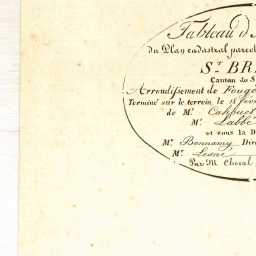 Tableau d'A
du Plan cadastral parcel
St. BR
Canton de S
Arrondissement de Foug
Terminé sur le terrain le 15 fév
de Mr.
Mr. Labbé
et sous la D
Mr. Bonnamy Dir
Mr. Lesné
Par M. Choral